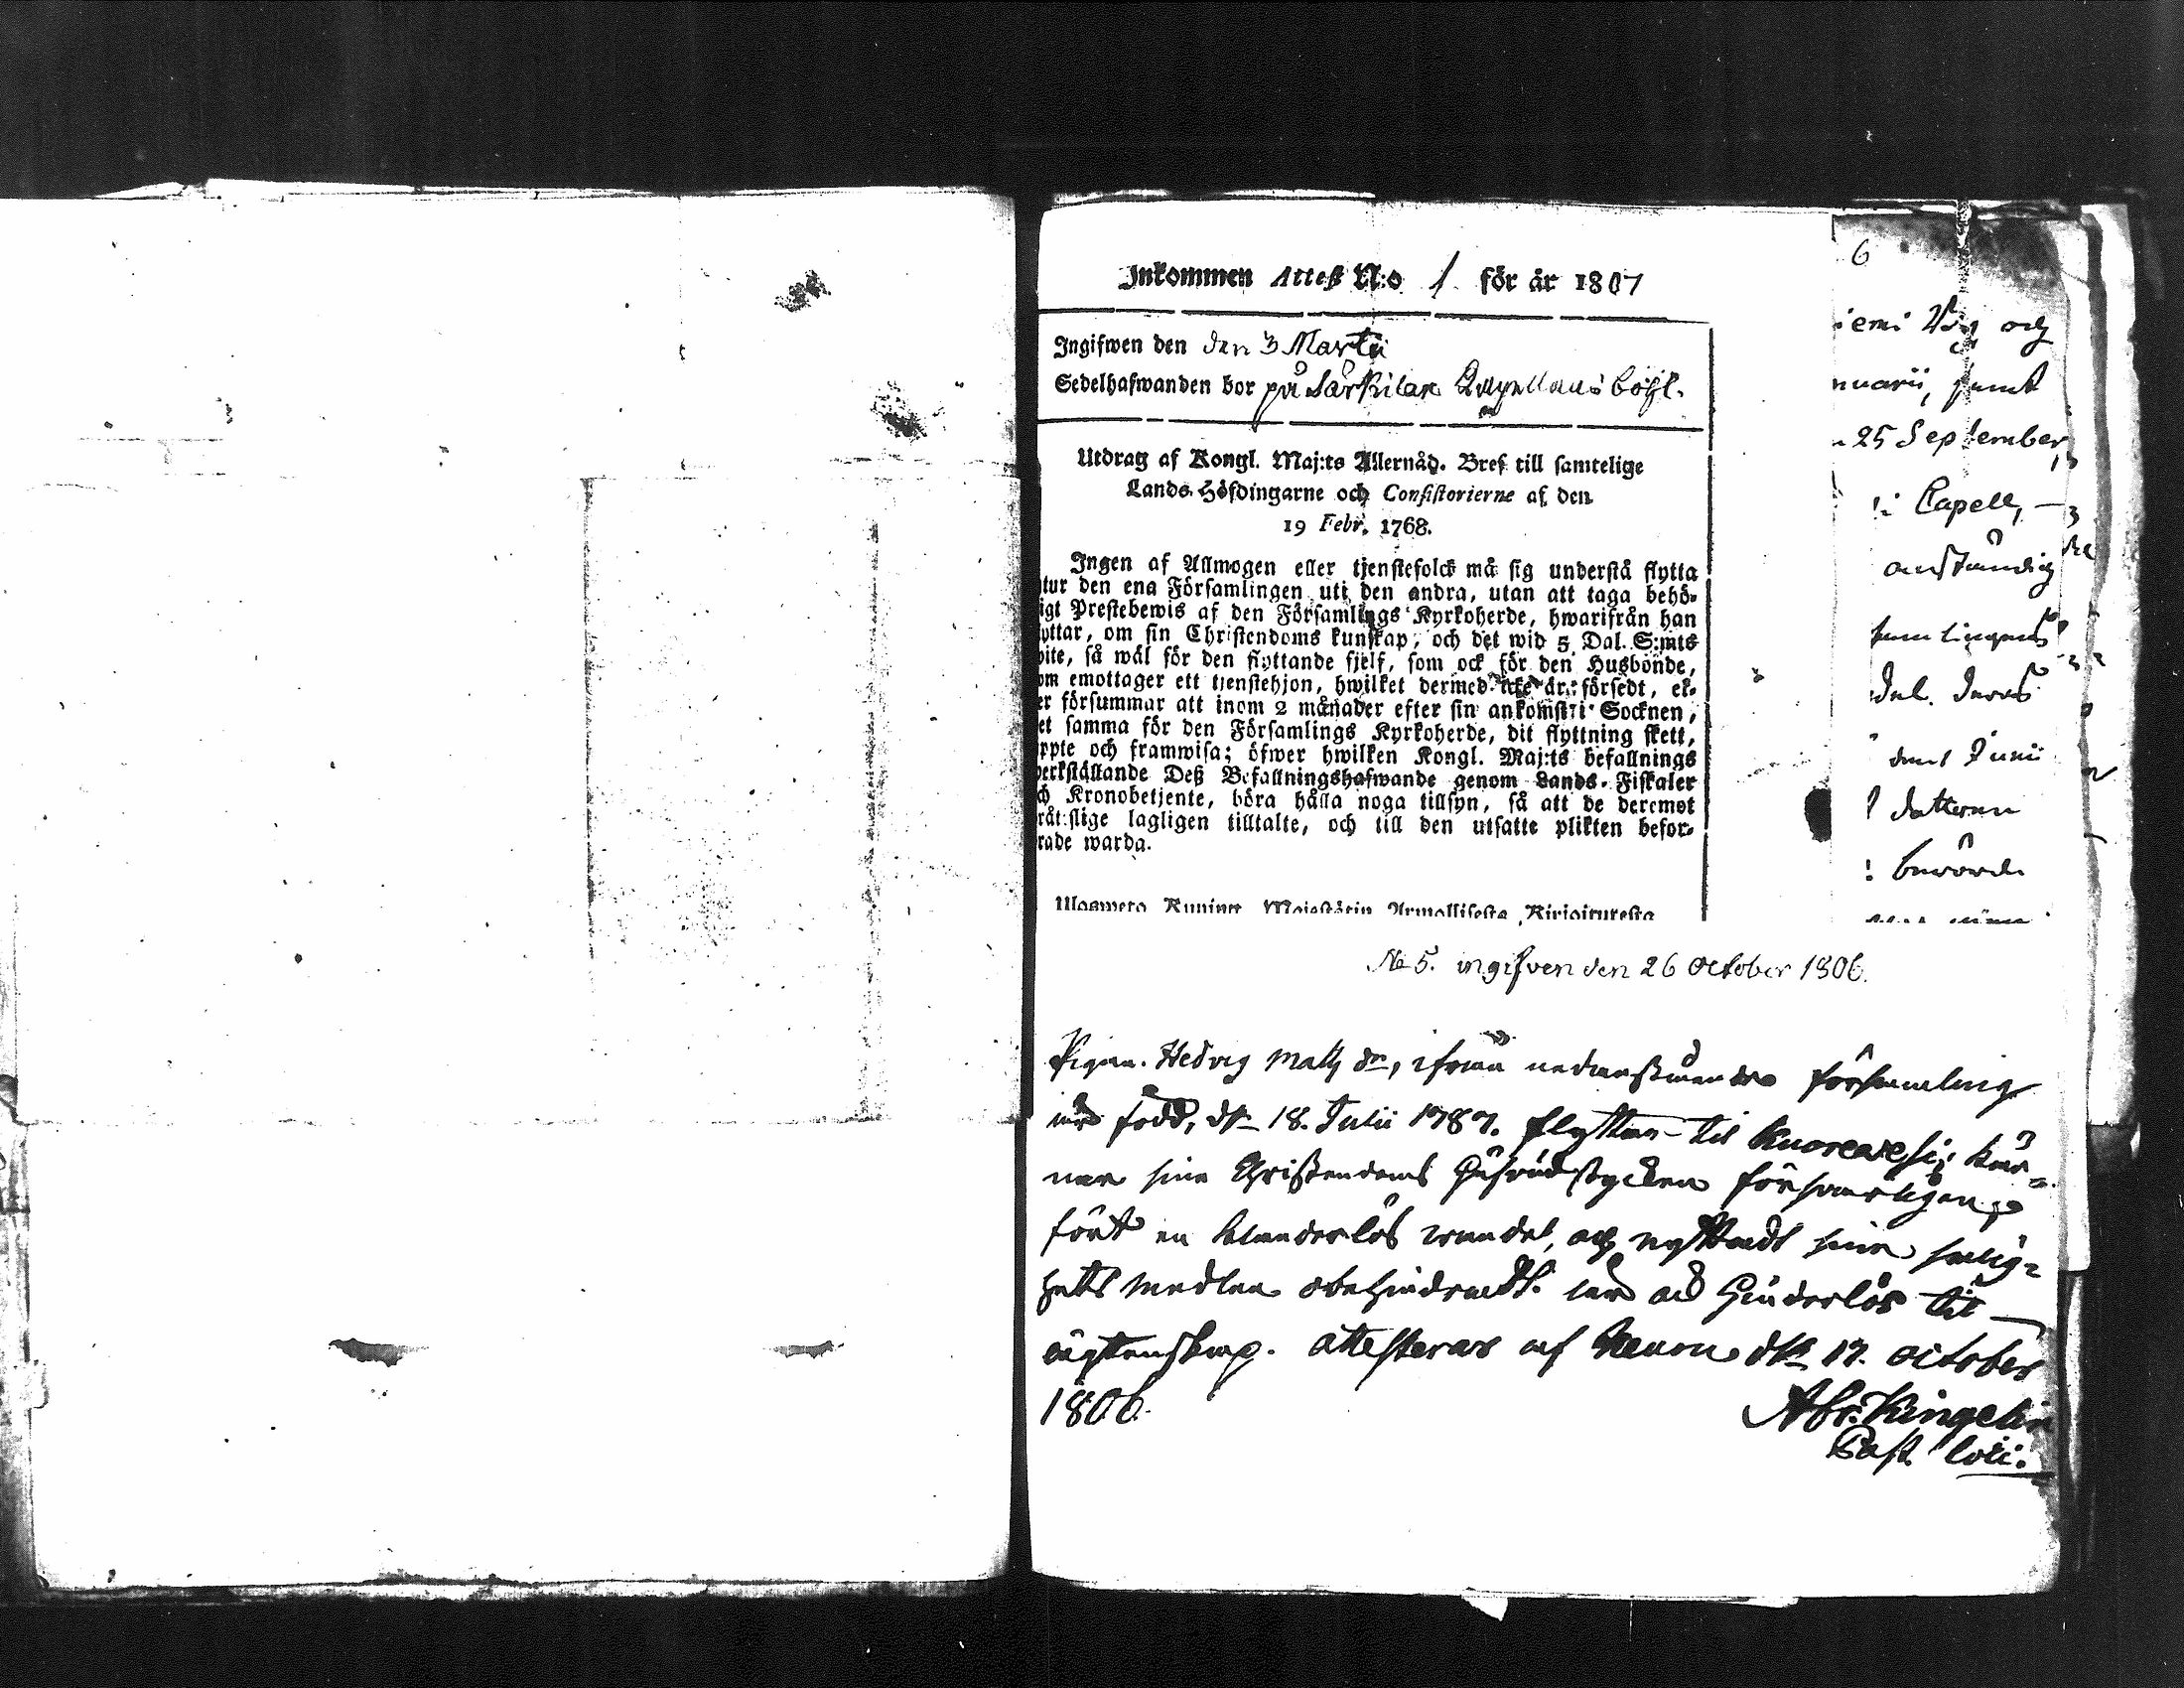 Inkommen Attest N:o 1 för år 1807
Ingifwen den den 3 Martii
Sedelhafwanden bor på Särkilax Capellans böhl.
Utdrag af Kongl. Maj:ts Allernåd. Bref till samtelige
Lands-Höfdingarne och Consistorierne af den
19 Febr. 1768.
Ingen af Allmogen eller tjenstefolck må sig understå flytta
utur den ena Församlingen uti den andra, utan att taga behö-
igt Prestebewis af den Församlings Kyrkoherde, hwarifrån han
yttar, om sin Christendoms kunskap, och det wid 5 Dal. S:mts
wite, så wäl för den flyttande sjelf, som ock för den Husbonde,
om emottager ett tjenstehjon, hwilket dermed icke är försedt, el-
er försummar att inom 2 månader efter sin ankomst i Socknen,
et samma för den Församlings Kyrkoherde, dit flyttning skett,
ppte och framwisa; öfwer hwilken Kongl. Maj:ts befallnings
werkställande Deß Befallningshafwande genom Lands-Fiskaler
ch Kronobetjente, böra hålla noga tillsyn, så att de deremot
råtslige lagligen tilltalte, och till den utsatte plikten befor-
rade warda.
6
iemi och
nuarii, samt
25 September
Capell,
anständig
samlingens
del. deras
Junii
dotteren
No 5. ingifven den 26 October 1806.
Pigan. Hedvig Matts dr, ifrån nedanstående församling
är född, dn 18. Julii 1787. flyttar til Kuorevesi; kän-
ner sine Christendoms Hufvudstycken försvarligen,
fört en klanderlös vandel, och nyttadt sina salig-
hets medlen obehindradt. är ock hinderlös til
ägtenskap. attesteras af Keuru dn 17. october
1806.
Abr. Kingelin
Past. loci.